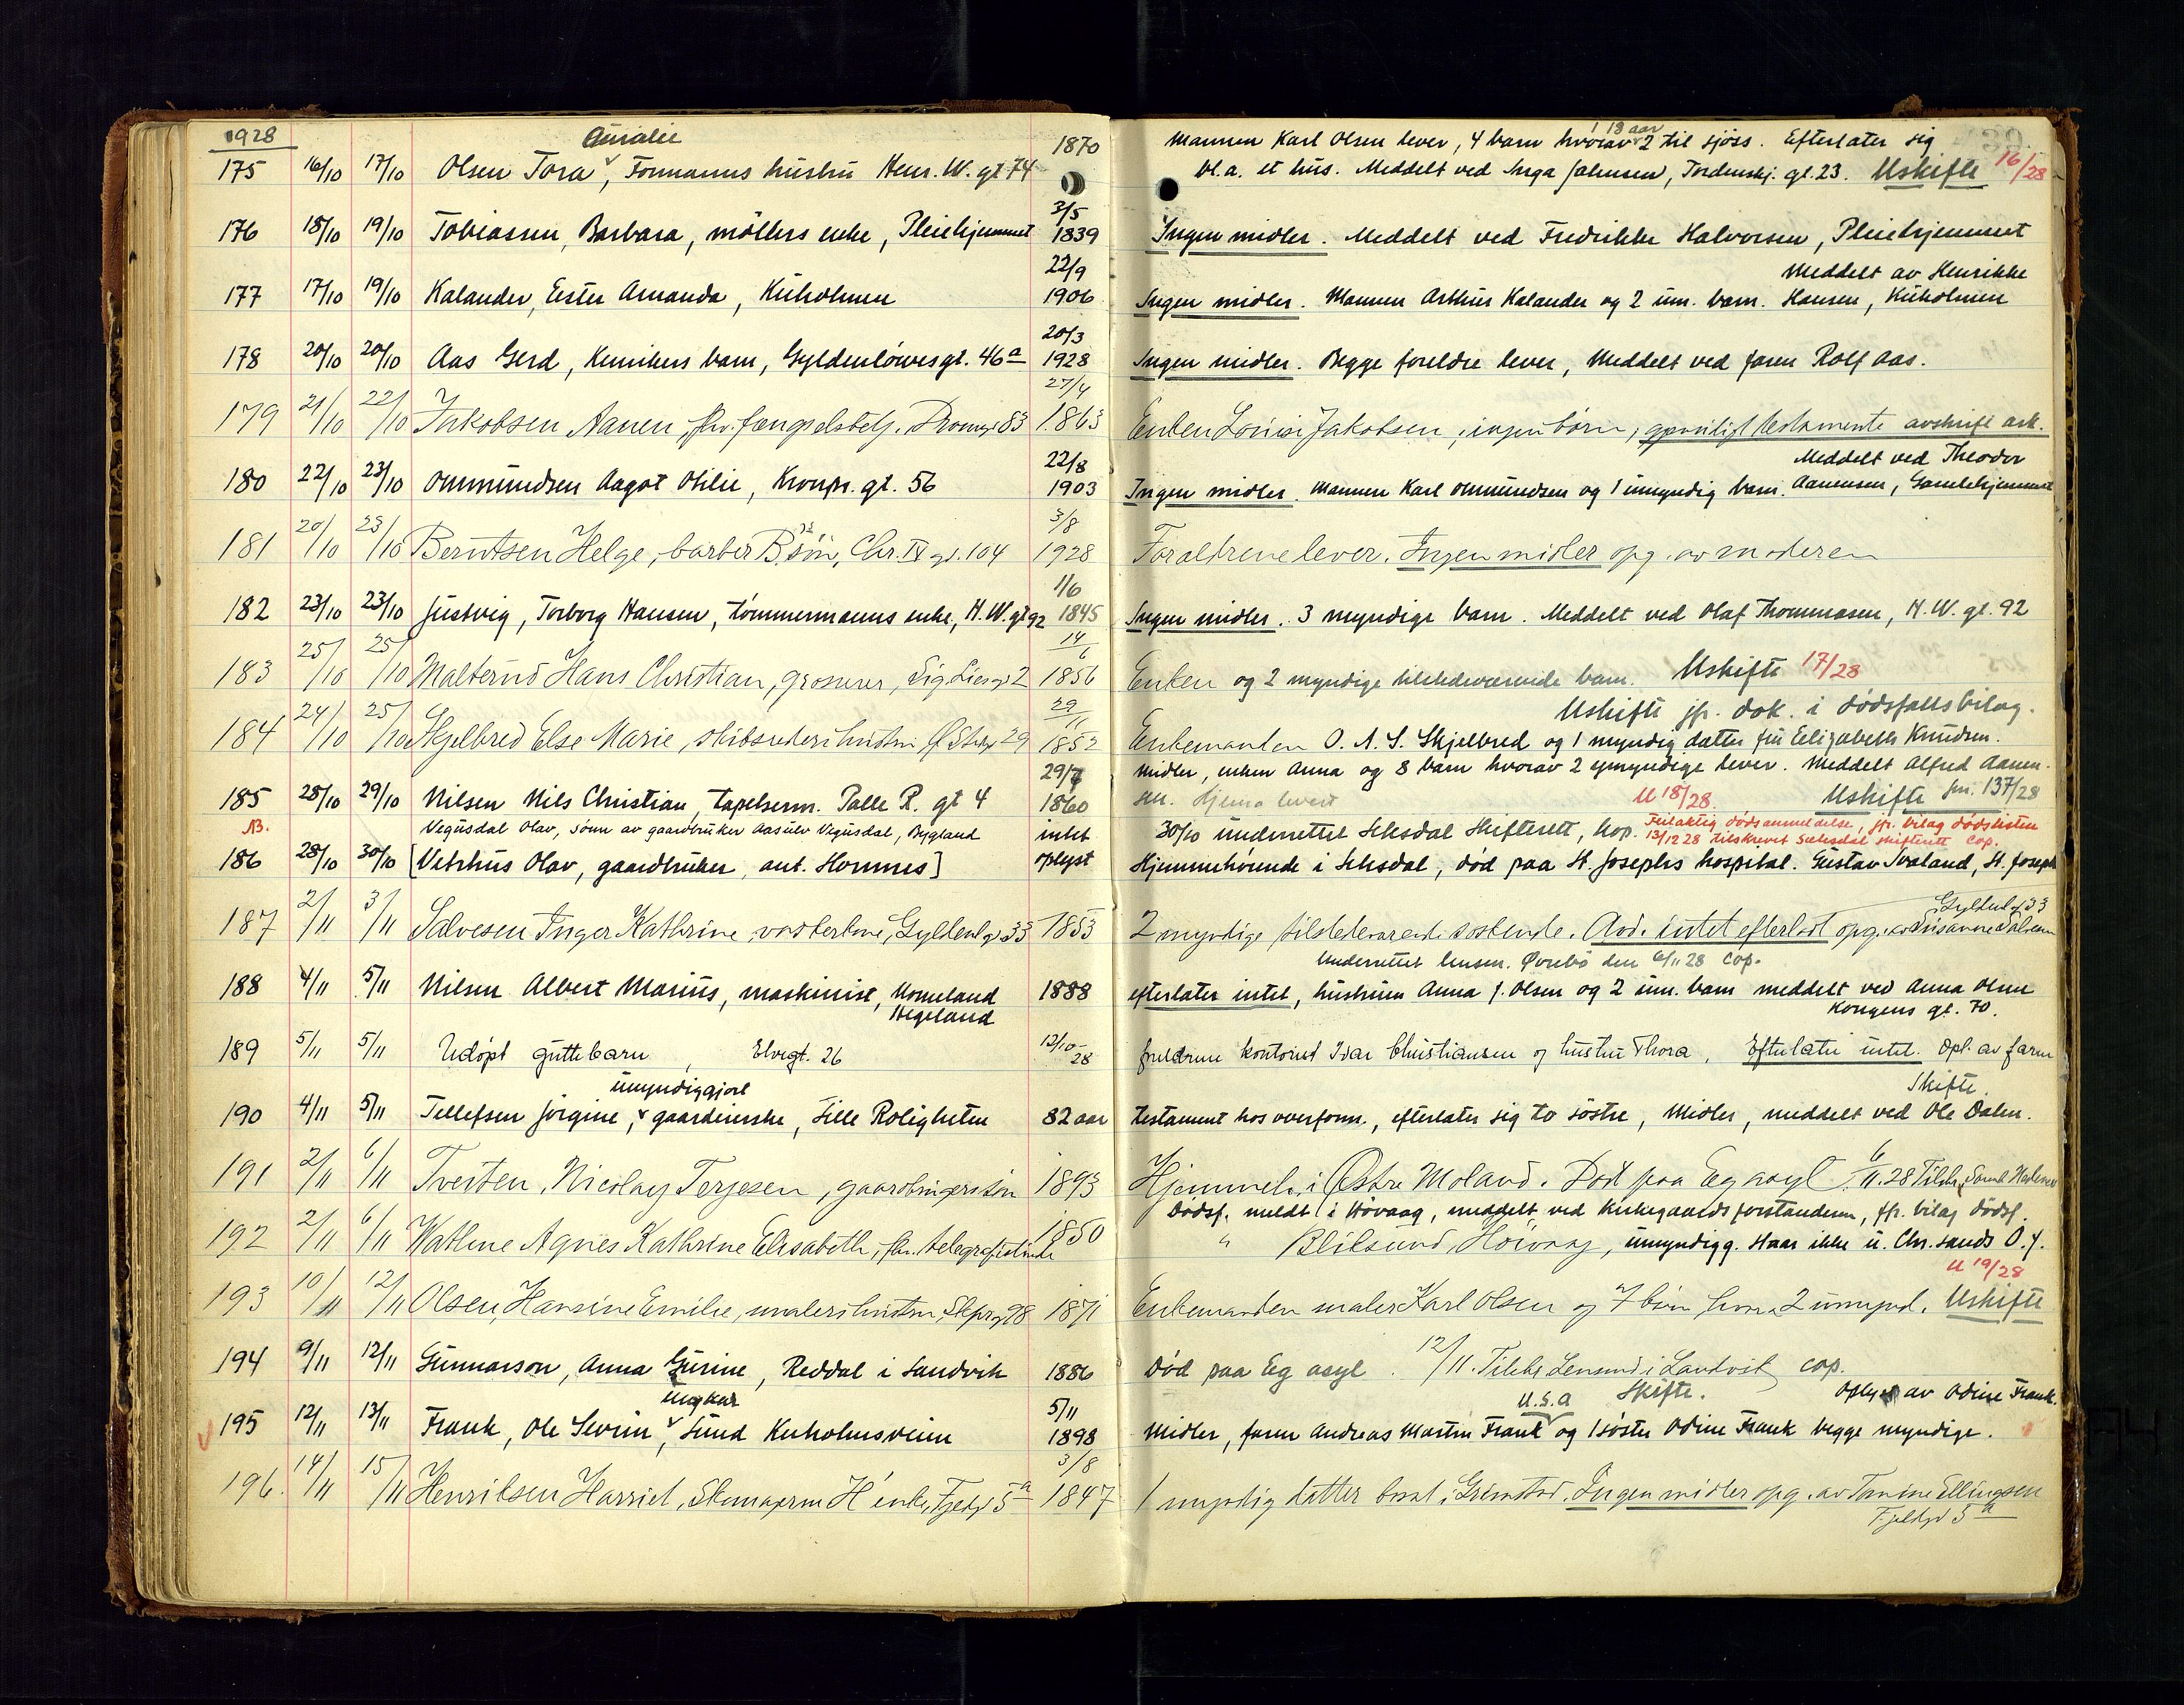 1928
Amalie 1870 Mannen Karl Olsen lever, 4 barn hvorav 1 18 aar 2 til sjöss. Efterlater sig
175 16/10 17/10 Olsen Tora, Formanns hustru Henr. W. gt 74 bl.a. et hus. Meddelt ved Inga Johnsen, Tordenskj. gt. 23. Uskifte 16/28
3/5
176 18/10 19/10 Tobiassen, Barbara, möllers enke, Pleiehjemmet 1839 Ingen midler. Meddelt ved Fredrikke Halvorsen, Pleiehjemmet
22/9 Meddelt av Henrikke
177 17/10 19/10 Kalander, Ester Amanda, Kuholmen 1906 Ingen midler. Mannen Arthur Kalander og 2 um. barn. Hansen, Kuholmen
20/3
178 20/10 20/10 Aas Gerd, Kemikers barn, Gyldenlöwesgt. 46a 1928 Ingen midler. Begge foreldre lever, Meddelt ved faren Rolf Aas.
27/4
179 21/10 22/10 Jakobsen Aanen, fhv. fængselsbetj. Dronngt 83 1863 Enken Lovise Jakobsen, ingen börn, gjensidigt testamente avskrift ark.
22/8 Meddelt ved Theodor
180 22/10 23/10 Ommundsen Aagot Otilie, Kronpr. gt. 56 1903 Ingen midler. Mannen Karl Ommundsen og 1 umyndig barn. Aanensen, Gamlehjemmet
3/8
181 20/10 23/10 Berntsen Helge, barber B.s sön, Chr. IV gt. 104 1928 Forældrene lever. Ingen midler opg. av moderen
1/6
182 23/10 23/10 Justvig, Torborg Hansen, tömmermanns enke, H.W. gt 92 1845 Ingen midler. 3 myndige barn. Meddelt ved Olaf Thommasen, H.W. gt. 92
14/6
183 25/10 25/10 Malterud Hans Christian, grosserer, Sig. Liesgt 2 1856 Enken og 2 myndige tilstedeværende barn. Uskifte 17/28
29/11 Uskifte jfr. dok. i dödsfallsbilag.
184 24/10 25/10 Skjelbred Else Marie, skibsrederhustru, Ø. Strgt 29 1852 Enkemanden O. A. S. Skjelbred og 1 myndig datter fru Elizabeth Knudsen.
29/7 Midler, enken Anna og 8 barn hvorav 2 umyndige lever. Meddelt Alfred Aanen-
185 28/10 29/10 Nilsen Nils Christian, tapetserm. Palle R. gt 4 1860 sen. U 18/28. Uskifte jnr. 137/28
NB. Vegusdal Olav, sönn av gaardbruker Aasulv Vegusdal, Bygland intet 30/10 underrettet Setesdal Skifterett, kop. Feilaktig dödsanmeldelse, jfr. bilag dödslisten 13/12 28 tilskrevet Setesdal skifterett cop.
186 28/10 30/10 [Vetrhus Olav, gaardbruker, ant. Hornnes] oplyst Hjemmehörende i Setesdal, död paa St. Josephs hospital. Gustav Svaland, St. Joseph
Gyldenl gt 33
187 2/11 3/11 Salvesen Inger Kathrine, vaskerkone, Gyldenl gt 33 1853 2 myndige tilstedeværende söskende. Avd. intet efterladt opg. av Susanne Salvesen
Underrettet lensm. Øvrebö den 6/11 28 cop.
188 4/11 5/11 Nilsen Albert Marius, maskinist, Homeland 1888 efterlater intet, hustruen Anna J. Olsen og 2 um. barn meddelt ved Anna Olsen
Hegeland Kongens gt. 70.
189 5/11 5/11 Udöpt guttebarn, Elvegt. 26 12/10-28 foreldrene kontorist Ivar Christiansen og hustru Thora, Efterlater intet. Opl. av faren
umyndiggjort Skifte
190 4/11 5/11 Tellefsen Jörgine, gaardeierske, Lille Roligheten 82 aar testament hos overform., efterlater sig to söstre, Midler, meddelt ved Ole Dalen.
191 2/11 6/11 Tveiten, Nicolay Terjesen, gaardbrugersön 1893 Hjemmeh. i Østre Moland. Död paa Eg asyl. 6/11.28 Tilskr.
Dödsf. meldt i Hövaag, meddelt ved Kirkegaardsforstanderen, jfr. bilag dödsf.
192 2/11 6/11 Wathne Agnes Kathrine Elisabeth, fhv. telegrafistinde 1850 " Blilsund, Höivaag, umyndigg. staar ikke u. Chr.sands O.f.
U 19/28
193 10/11 12/11 Olsen, Hansine Emilie, malershustru, Skprgt 98 1871 Enkemanden maler Karl Olsen og 7 börn hvorav 2 umynd. Uskifte
194 9/11 12/11 Gunnarson, Anna Gurine, Reddal i Landvik 1886 Död paa Eg asyl. 12/11. Tilskr. Lensmd. i Landvik cop.
Ungkar 5/11 U.S.A Skifte. Oplyst av Odine Frank.
195 12/11 13/11 Frank, Ole Severin, Lund Kuholmsveien 1898 Midler, faren Andreas Martin Frank og 1 söster Odine Frank begge myndige.
3/8
196 14/11 15/11 Henriksen Harriet, Skomagerm H enke, Fjeldgt 5a 1847 1 myndig datter bosat i Grimstad. Ingen midler opg. av Tomine Ellingsen
Fjeldgt 5a